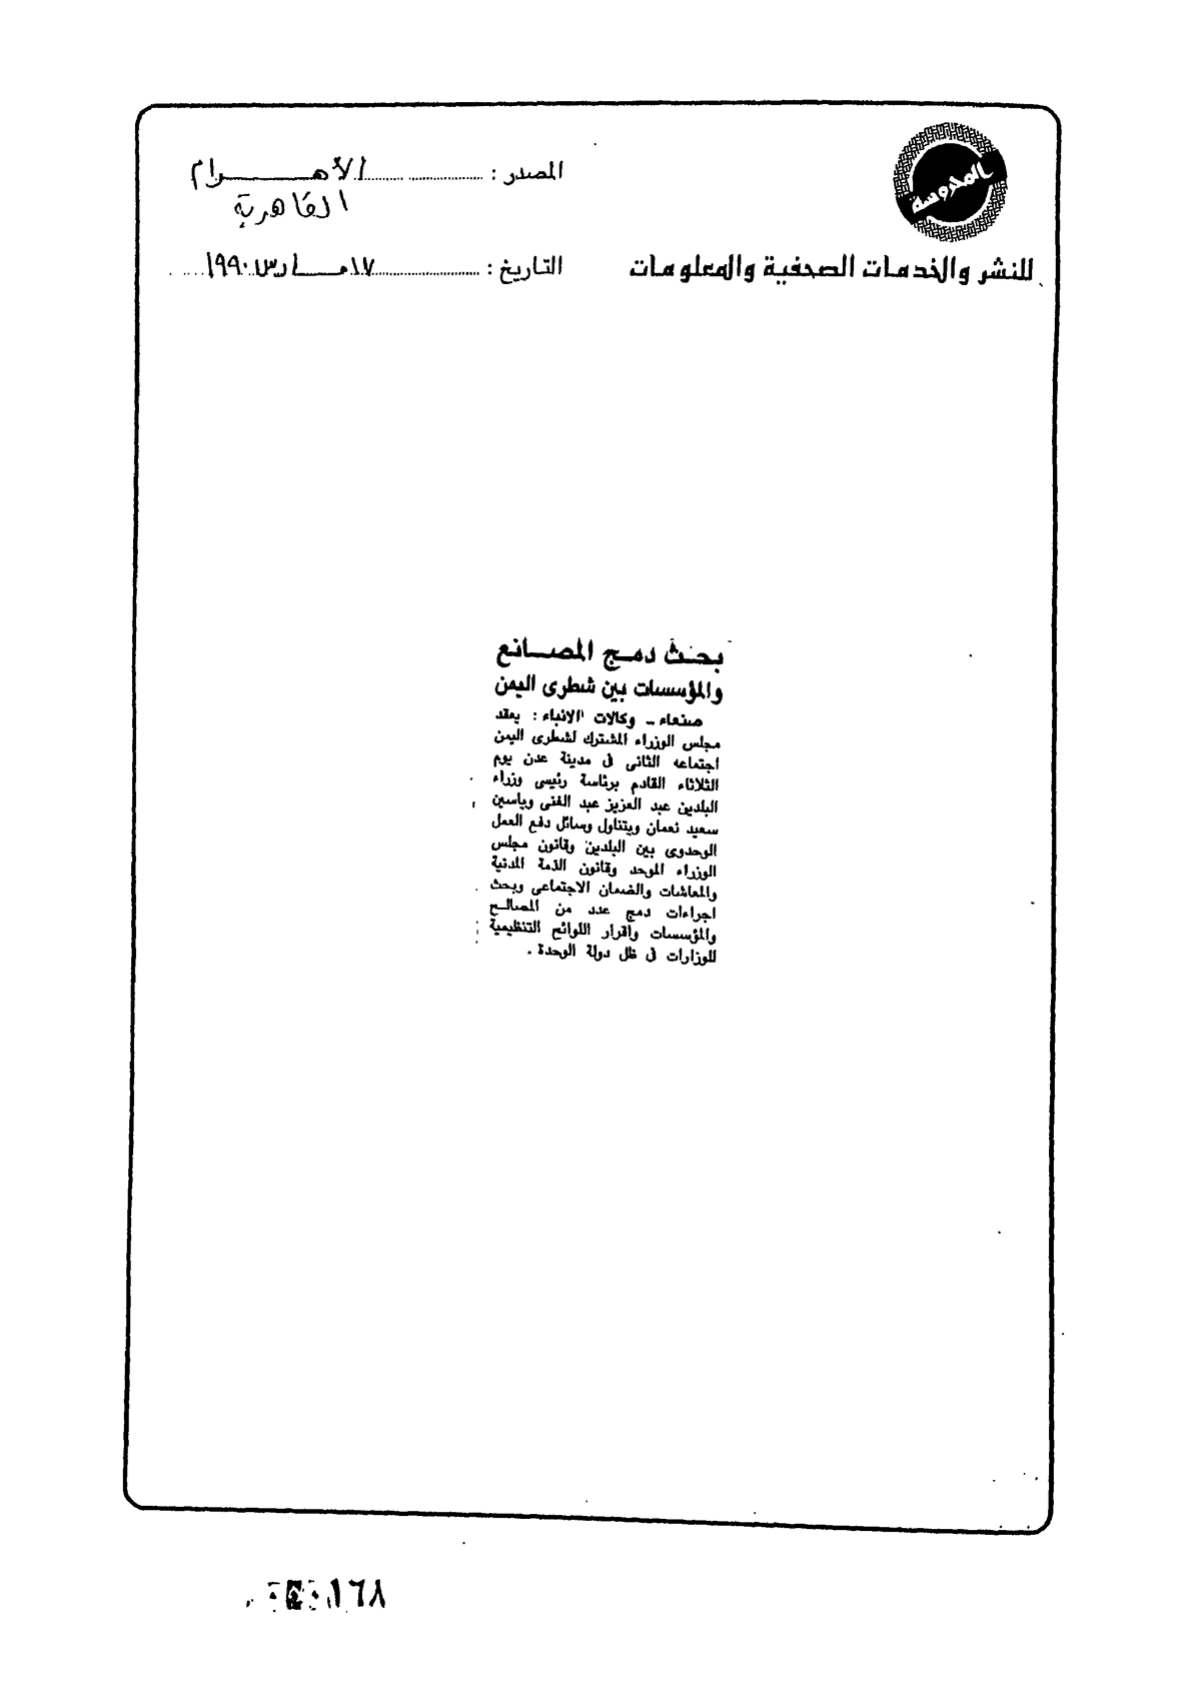 المحروسة
للنشر والخدمات الصحفية والمعلومات
المصدر : الأهرام
القاهرية
التاريخ : ١٧ مارس ١٩٩٠
بحث دمج المصانع
والمؤسسات بين شطرى اليمن
صنعاء - وكالات الانباء : يعقد
مجلس الوزراء المشترك لشطرى اليمن
اجتماعه الثانى فى مدينة عدن يوم
الثلاثاء القادم برئاسة رئيسى وزراء
البلدين عبد العزيز عبد الغنى وياسين
سعيد نعمان ويتناول وسائل دفع العمل
الوحدوى بين البلدين وقانون مجلس
الوزراء الموحد وقانون الذمة المدنية
والمعاشات والضمان الاجتماعى وبحث
اجراءات دمج عدد من المصالح
والمؤسسات واقرار اللوائح التنظيمية
للوزارات فى ظل دولة الوحدة .
١٦٨